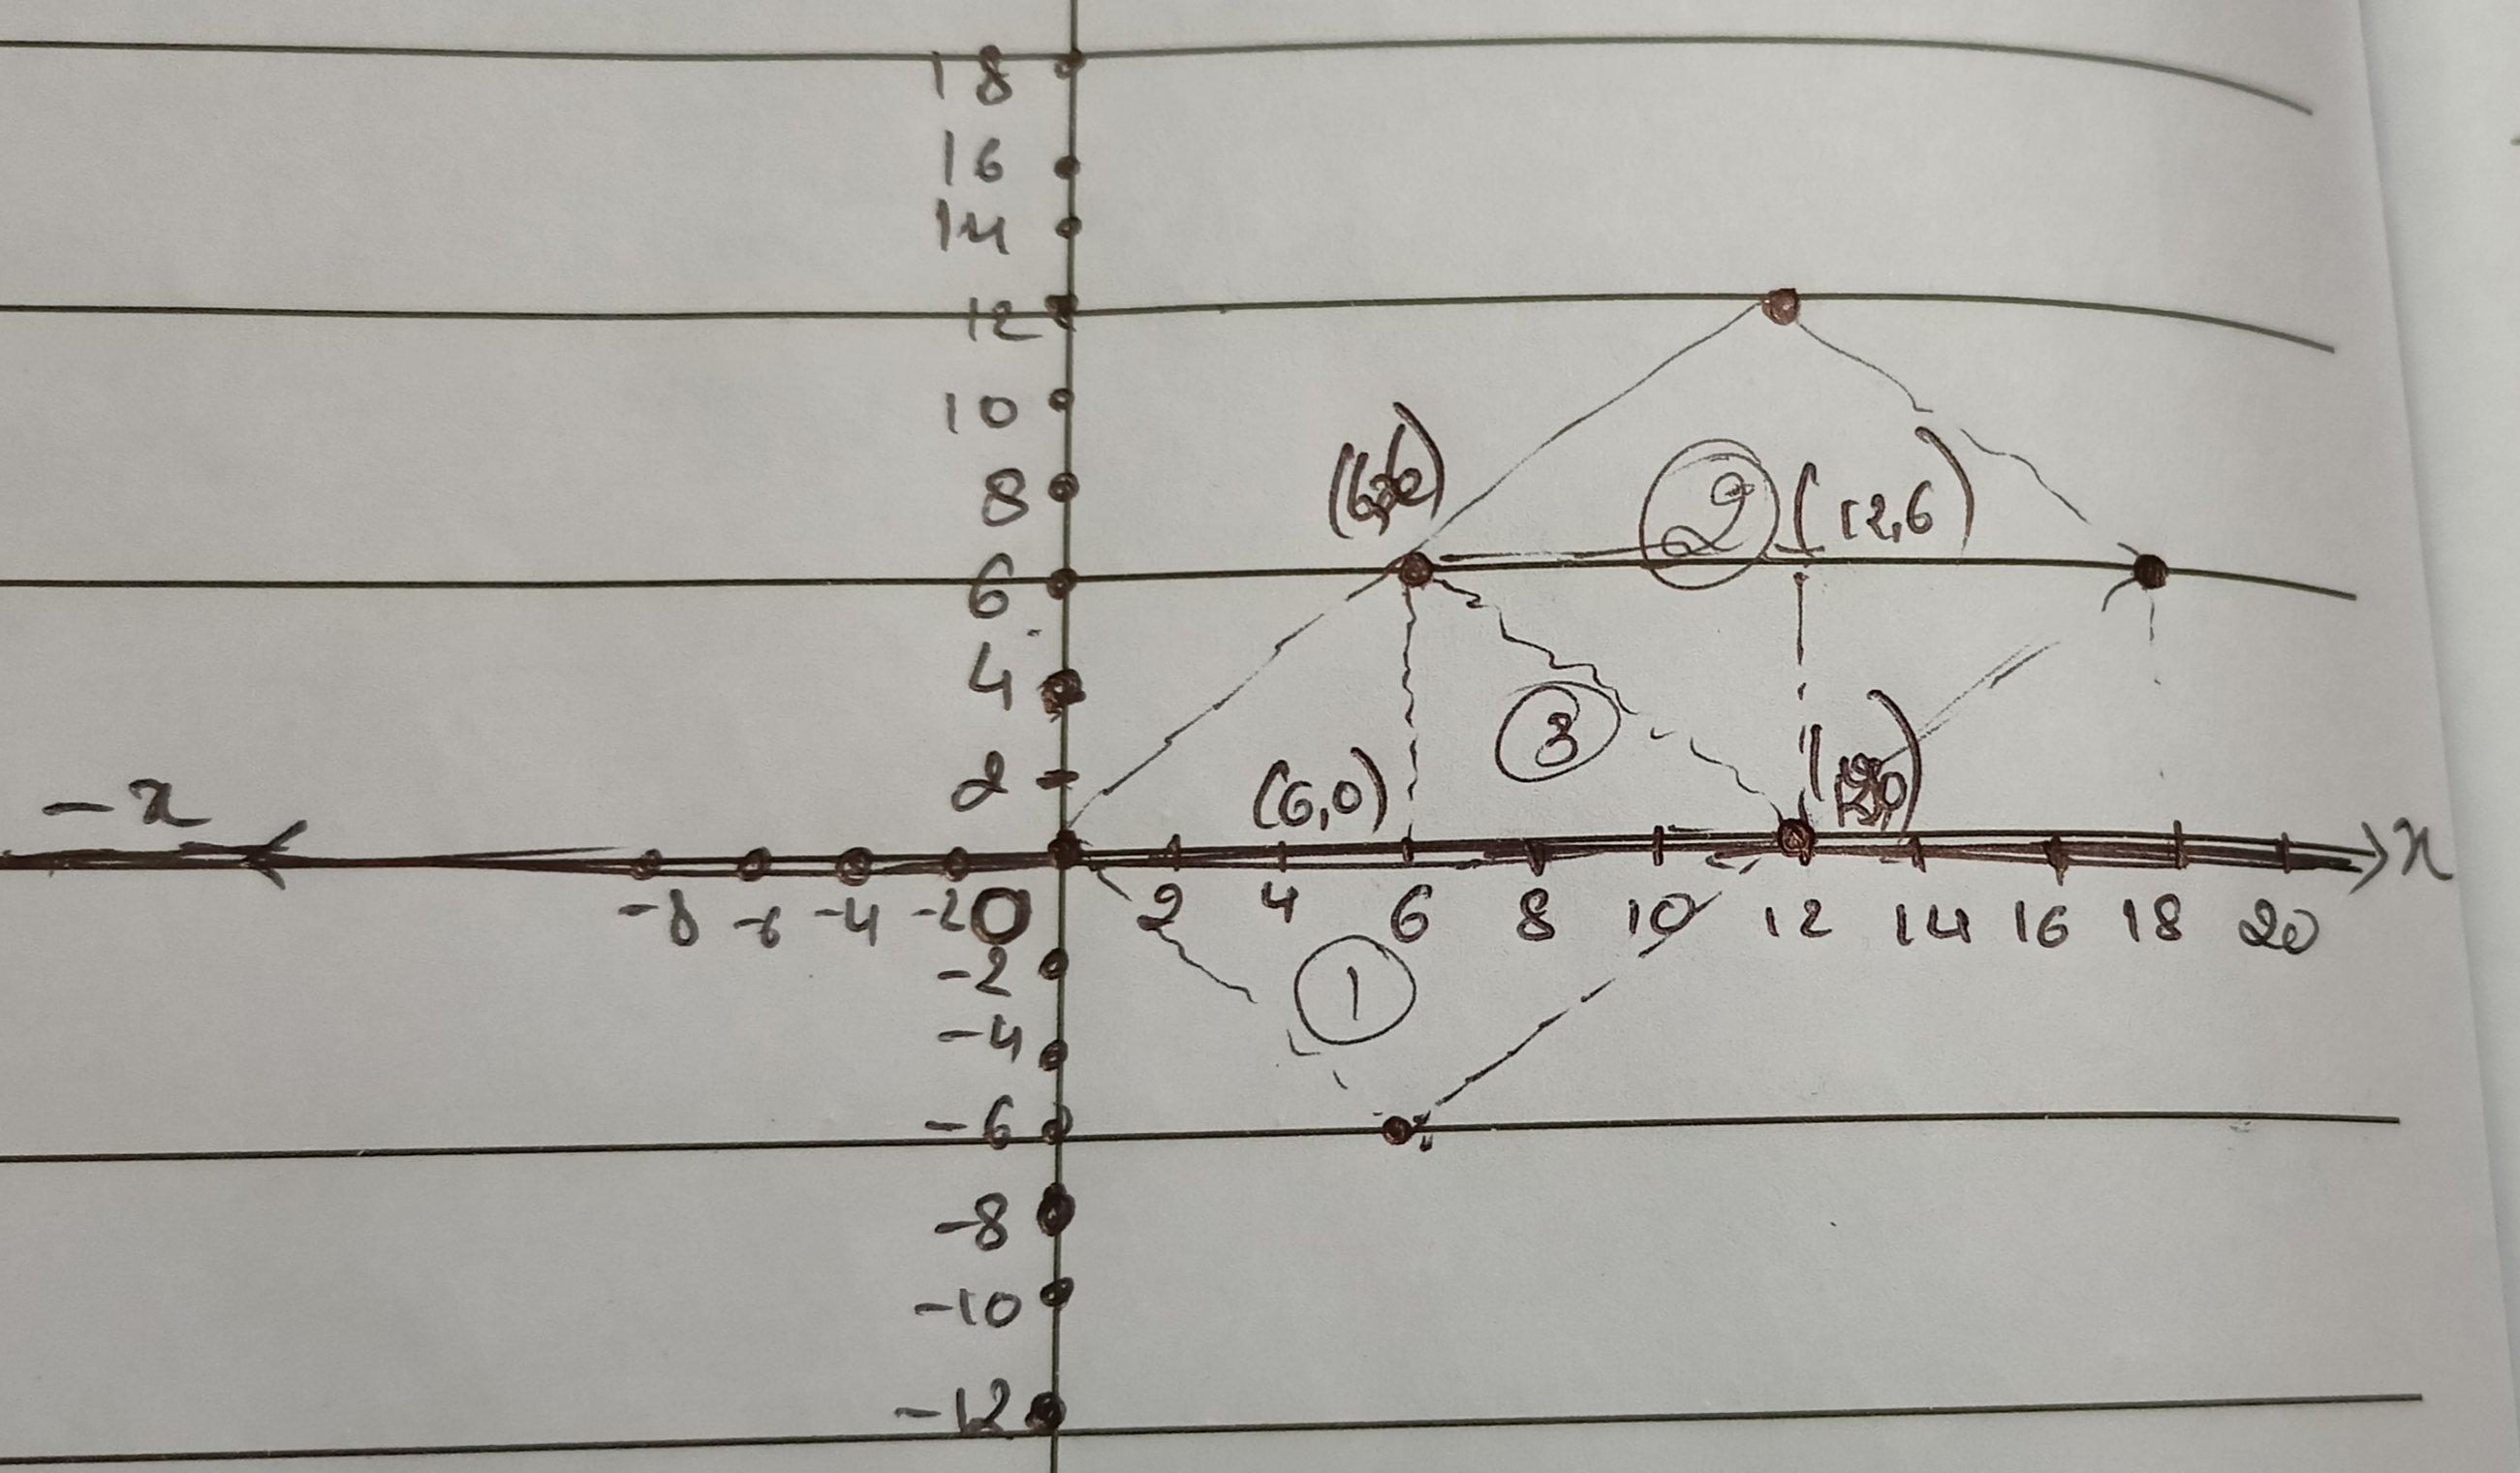 18
16
14
12
10
8
(12,6)
2
6
4
3
2
(6,0)
-x
x
-8 -6 -4 -2 0 2 4 6 8 10 12 14 16 18 20
-2
1
-4
-6
-8
-10
-12